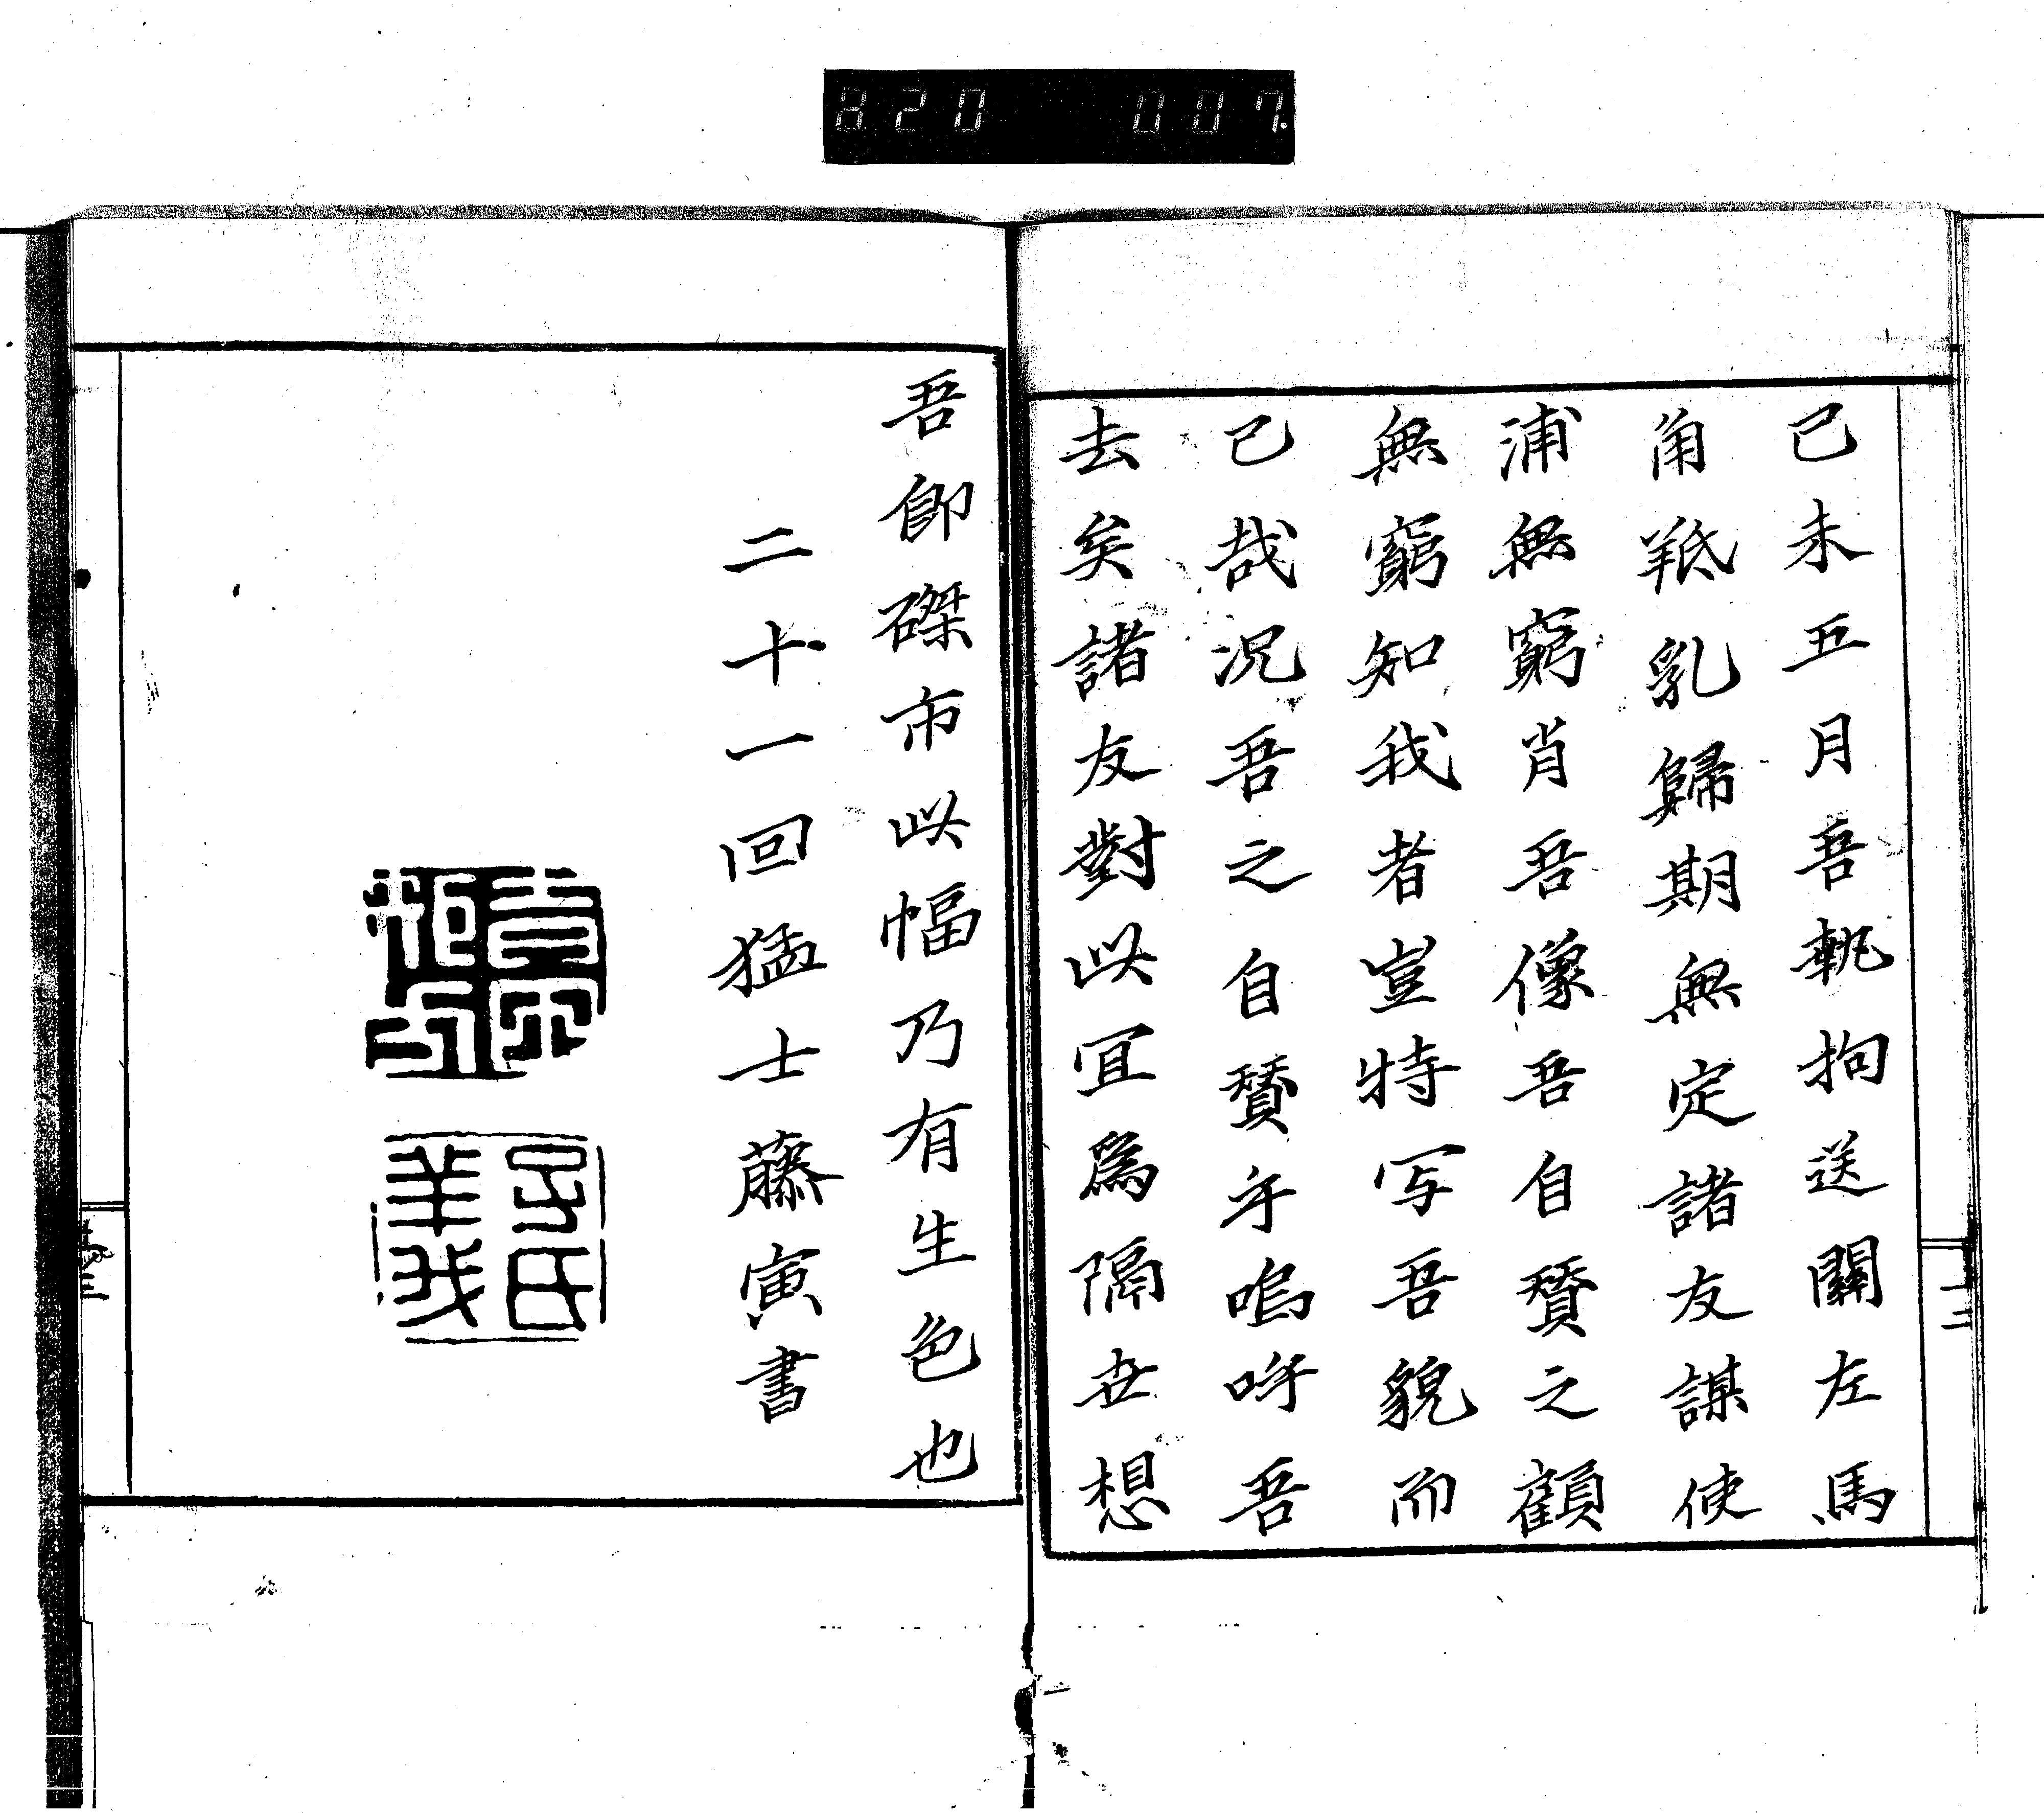 820 007.
己未五月吾執拘送關左馬
角羝乳歸期無定諸友謀使
浦無窮肖吾像吾自賛之顧
無窮知我者豈特写吾貌而
已哉況吾之自賛乎嗚呼吾
去矣諸友對此宜為隔世想
吾卽磔市此幅乃有生色也
二十一回猛士藤寅書
子氏
羊我